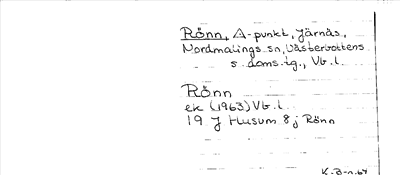 Rönn, A-punkt, Järnäs,
Nordmalings sn, Västerbottens
s. doms.tg., Vb. l.
Rönn
ek (1963) Vb. l.
19 J Husum 8 j Rönn